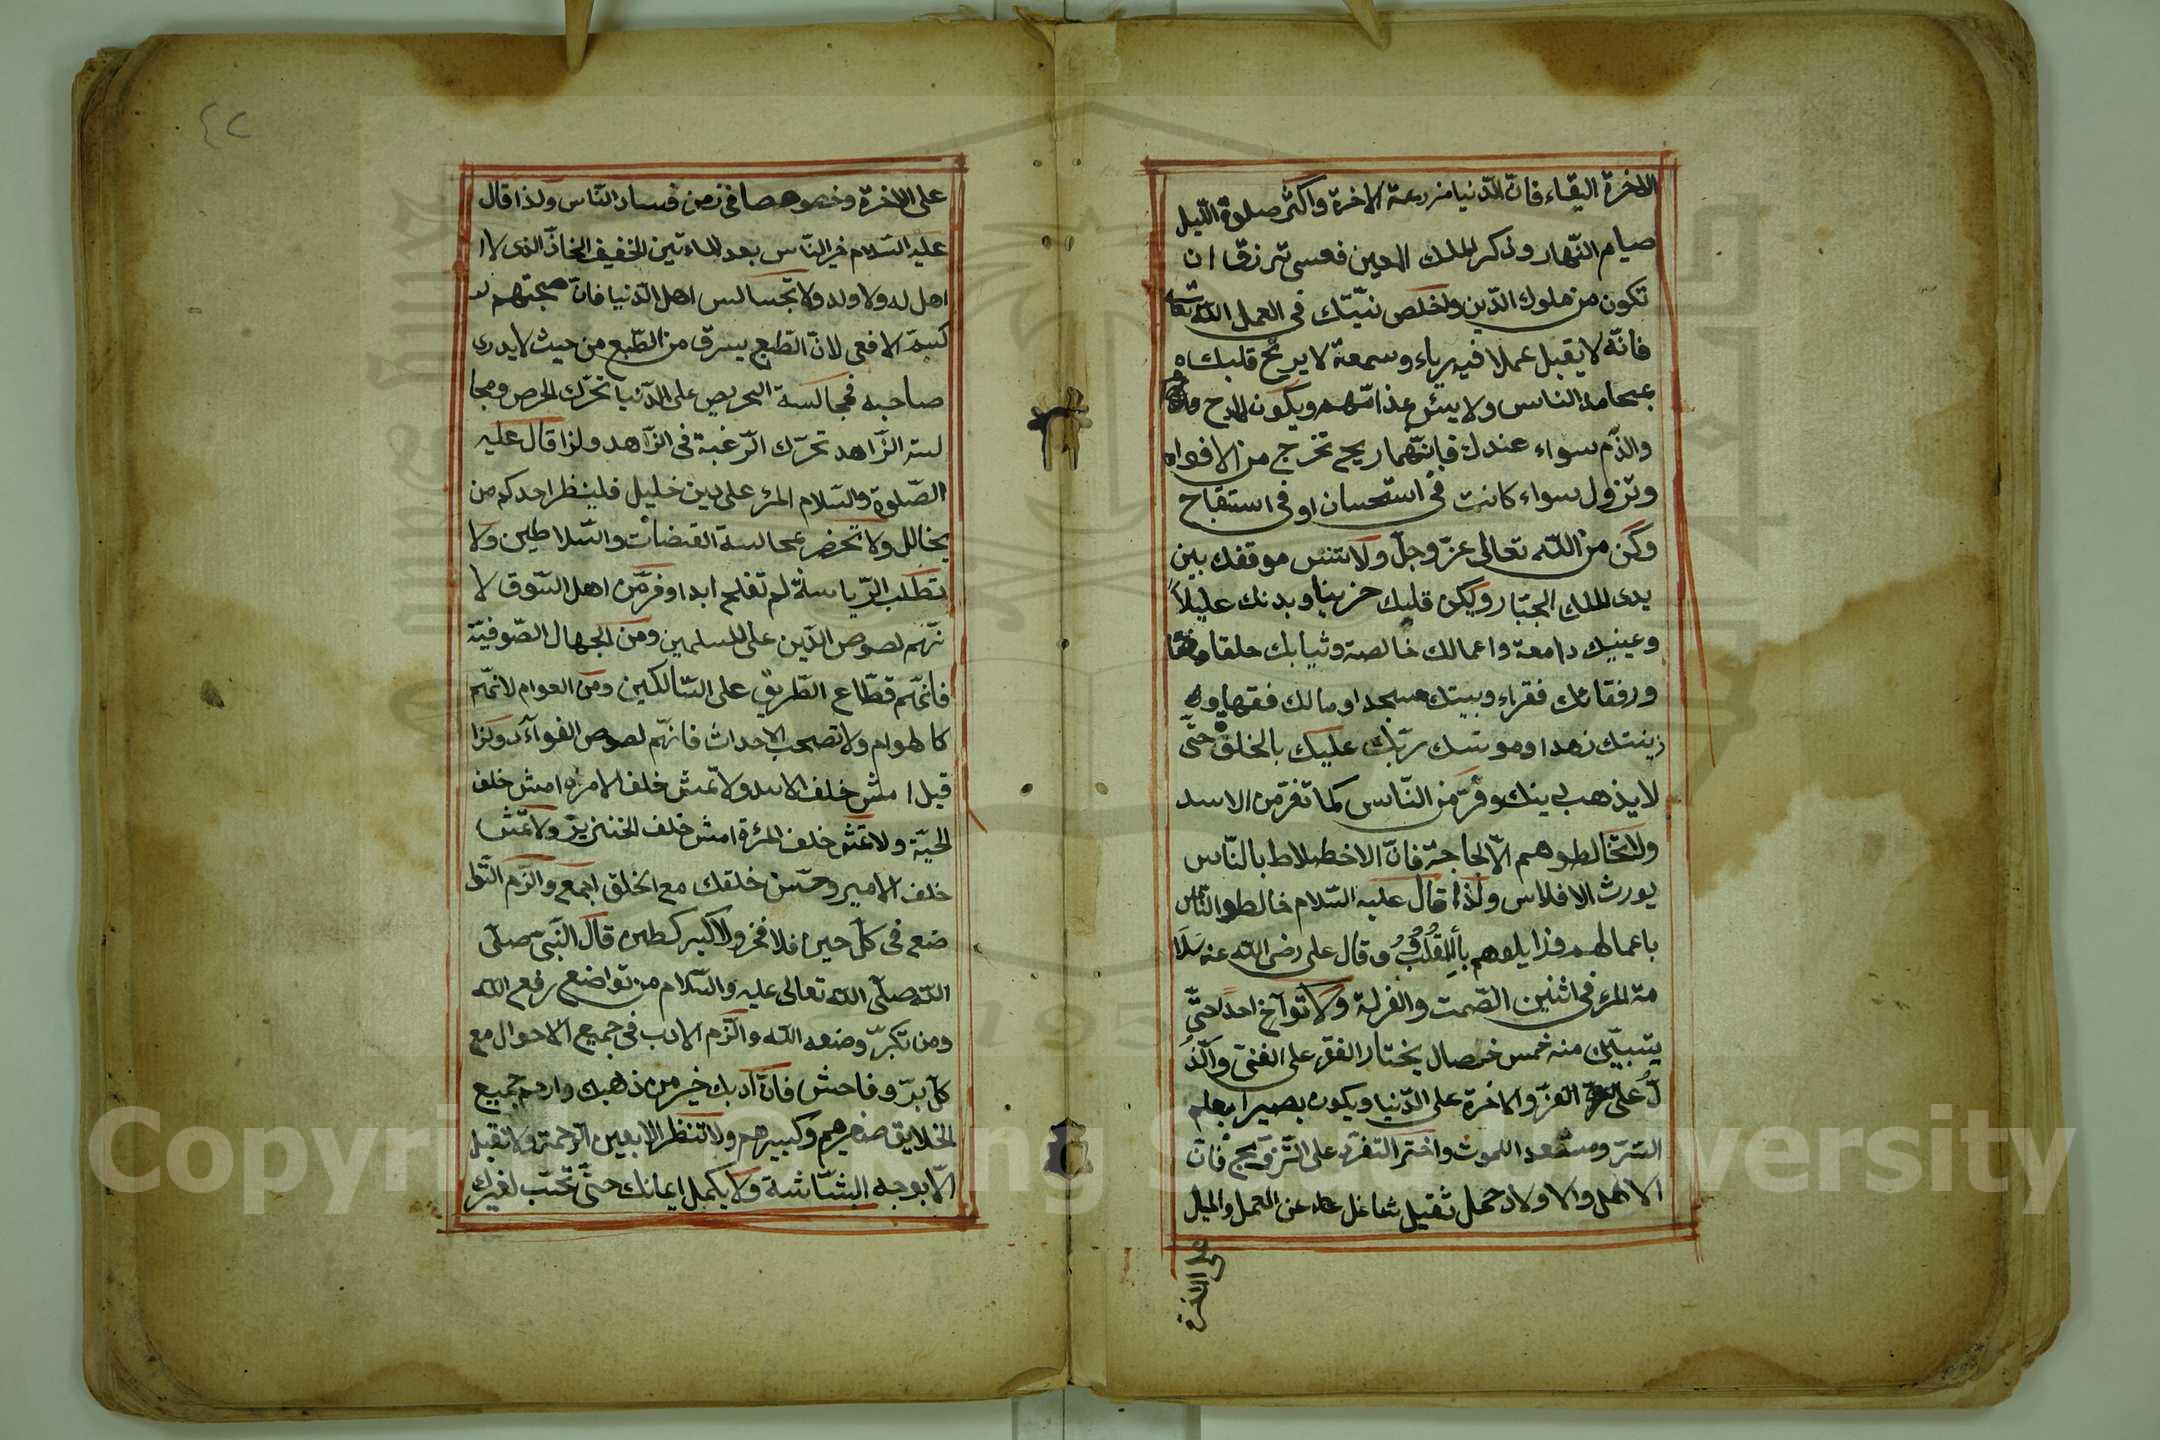 الاخرة البقاء فانّ الدّنيا مزرعة الاخرة واكثر صلوة اللّيل
صيام النّهار وذكر الملك المعين فعسى ترزق ان
تكون من ملوك الدّين واخلص نيّتك فى العمل اللّه تعالى
فانّه لا يقبل عملا فيه رياء وسمعة لا يريح قلبك
بمحامد الناس ولا يبئس بمذامّهم ويكون المادح
والذّم سواء عندك فانّهما ريح تخرج من الافواه
وتزول سواء كانت فى استحسان او فى استقباح
وكن من اللّه تعالى عزّ وجلّ ولا تنس موقفك بين
يدى الملك الجبّار ويكن قلبك حزينا وبدنك عليلاً
وعينيك دامعة واعمالك خالصة وثيابك خلقا
ورفقائك فقراء وبيتك مسجدا ومالك فقها و
زينتك زهدا ومونسك ربّك عليك بالخلق حتّى
لا يذهب لى ينك وفرّ من النّاس كما تفرّ من الاسد
ولا تخالطوهم الّا لحاجة فانّ الاختلاط بالنّاس
يورث الافلاس ولذا قال عليه السّلام خالطوا النّاس
باعمالهم وزايلوهم بالقلوب وقال على رضى اللّه عنه سَلَا
مة المرء فى اثنين الصّمت والعزلة ولا تواخ احداً حتّى
يتبيّن منه خمس خصال يختار الفقر على الغنى والذّ
لّ على العزّ والاخرة على الدّنيا ويكون بصيرا بعلم
السّرّ ومستعد اللموت واختر التفرّد على التّزويج فانّ
الاهل والاولاد حمل ثقيل شاغل عن العمل والميل
على الاخرة
٤٢
على الاخرة وخصوصا فى زمن فساد النّاس ولذا قال
عليه السّلام خير النّاس بعد الماءتين الخفيف الحاذّ الذى لا ا
اهل له ولا ولد ولا تجالس اهل الدّنيا فانّ صحبتهم
كسمّ الافعى لانّ الطّبع يسرق من الطّبع من حيث لا يدرى
صاحبه فمجالسة الحريص على الدّنيا تحرّك الحرص ومجا
لسة الزّاهد تحرّك الرّغبة فى الزّاهد ولذا قال عليه
الصّلوة والسّلام المرء على دين خليل فلينظر احدكم من
يخالل ولا تحضر مجالسة القضات والسّلاطين ولا
تطلب الرّياسة لم تفلح ابدا وفرّ من اهل السّوق لا
نّهم لصوص الدّين على المسلمين ومن الجهال الصّوفيّة
فانّهم قطّاع الطّريق على السّالكين ومن العوام لانّهم
كالهوام ولا تصحب الاحداث فانّهم لصوص الفوآد ولذا
قيل امش خلف الاسد ولا تمش خلف الامره امش خلف
الحيّة ولا تمش خلف المرءة امش خلف الخنزير ولا تمش
خلف الامير وحسّن خلقك مع الخلق اجمع والزم التّوا
ضع فى كلّ حين فلا فخر ولا كبر كطين قال النّبى صلّى
اللّه صلّى اللّه تعالى عليه والسّلام من تواضع رفع اللّه
ومن تكبّر وضعه اللّه والزم الادب فى جميع الاحوال مع
كلّ برّ وفاحش فانّ ادبك خير من ذهبك وارحم جميع
الخلايق صغيرهم وكبيرهم ولا تنظر الا بعين الرّحمة ولا تقبل
الّا بوجه البشّاشة ولا يكمل ايمانك حتّى تحبّ لغيرك
Copyright © King Saud University